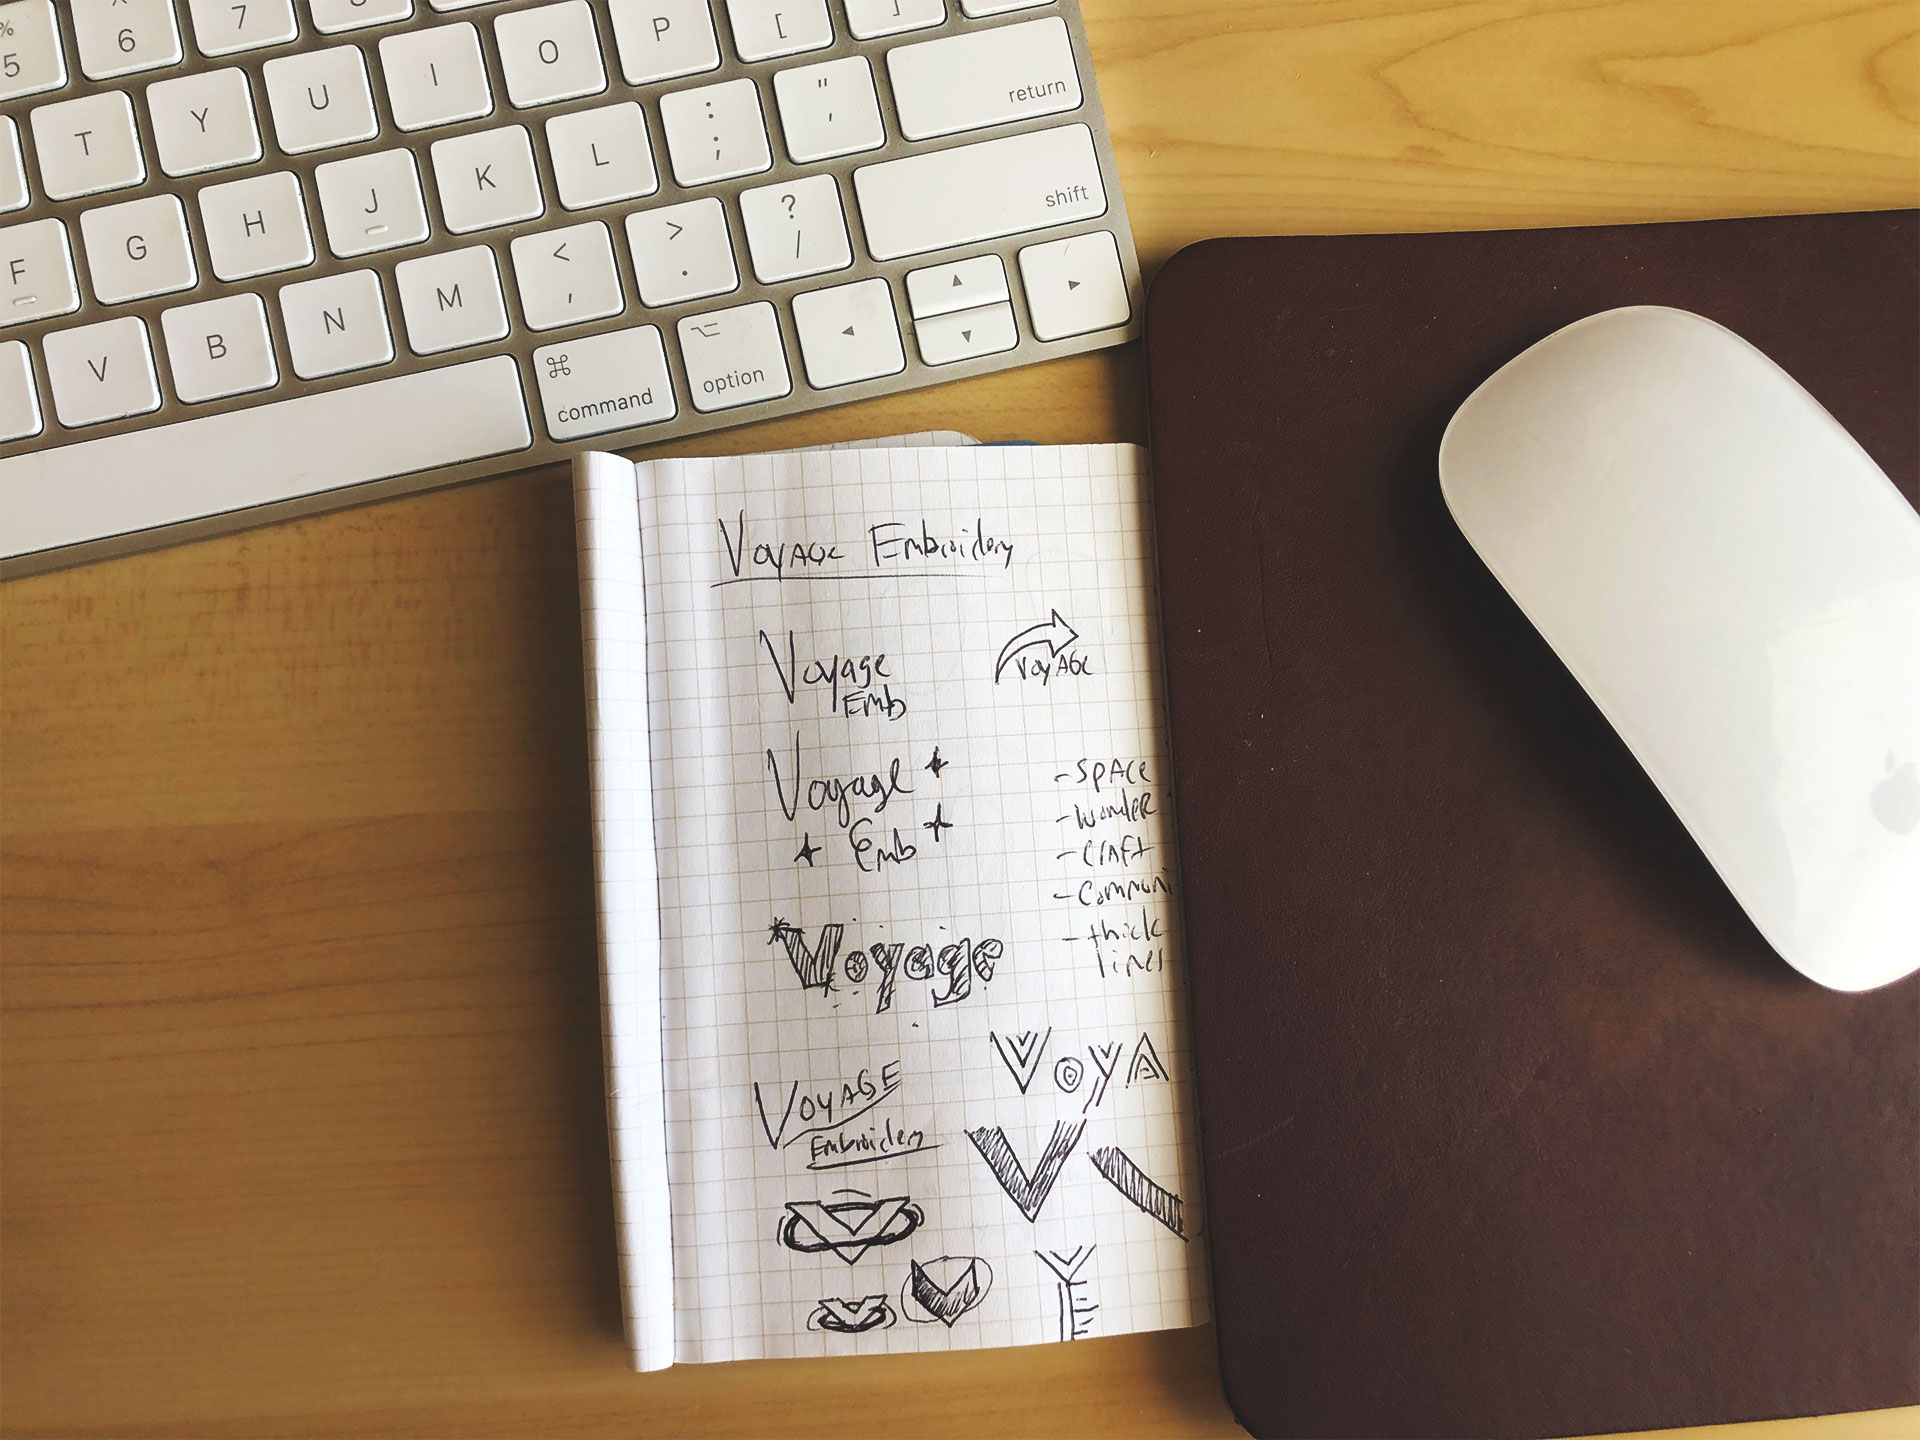 % 5
^ 6
7
8
O P { [ } ]
T Y U I " ' return
G H J K L : ; shift
F V B N M < , > . ? /
⌘ command ⌥ option ◀ ▲ ▼ ▶
Voyage Embroidery
Voyage
Emb
VOYAGE
Voyage
Emb
- SPACE
- Wonder
- Craft
- Communi
- thick
lines
Voyage
VOYA
VOYAGE
Embroidery
V
V
V
V